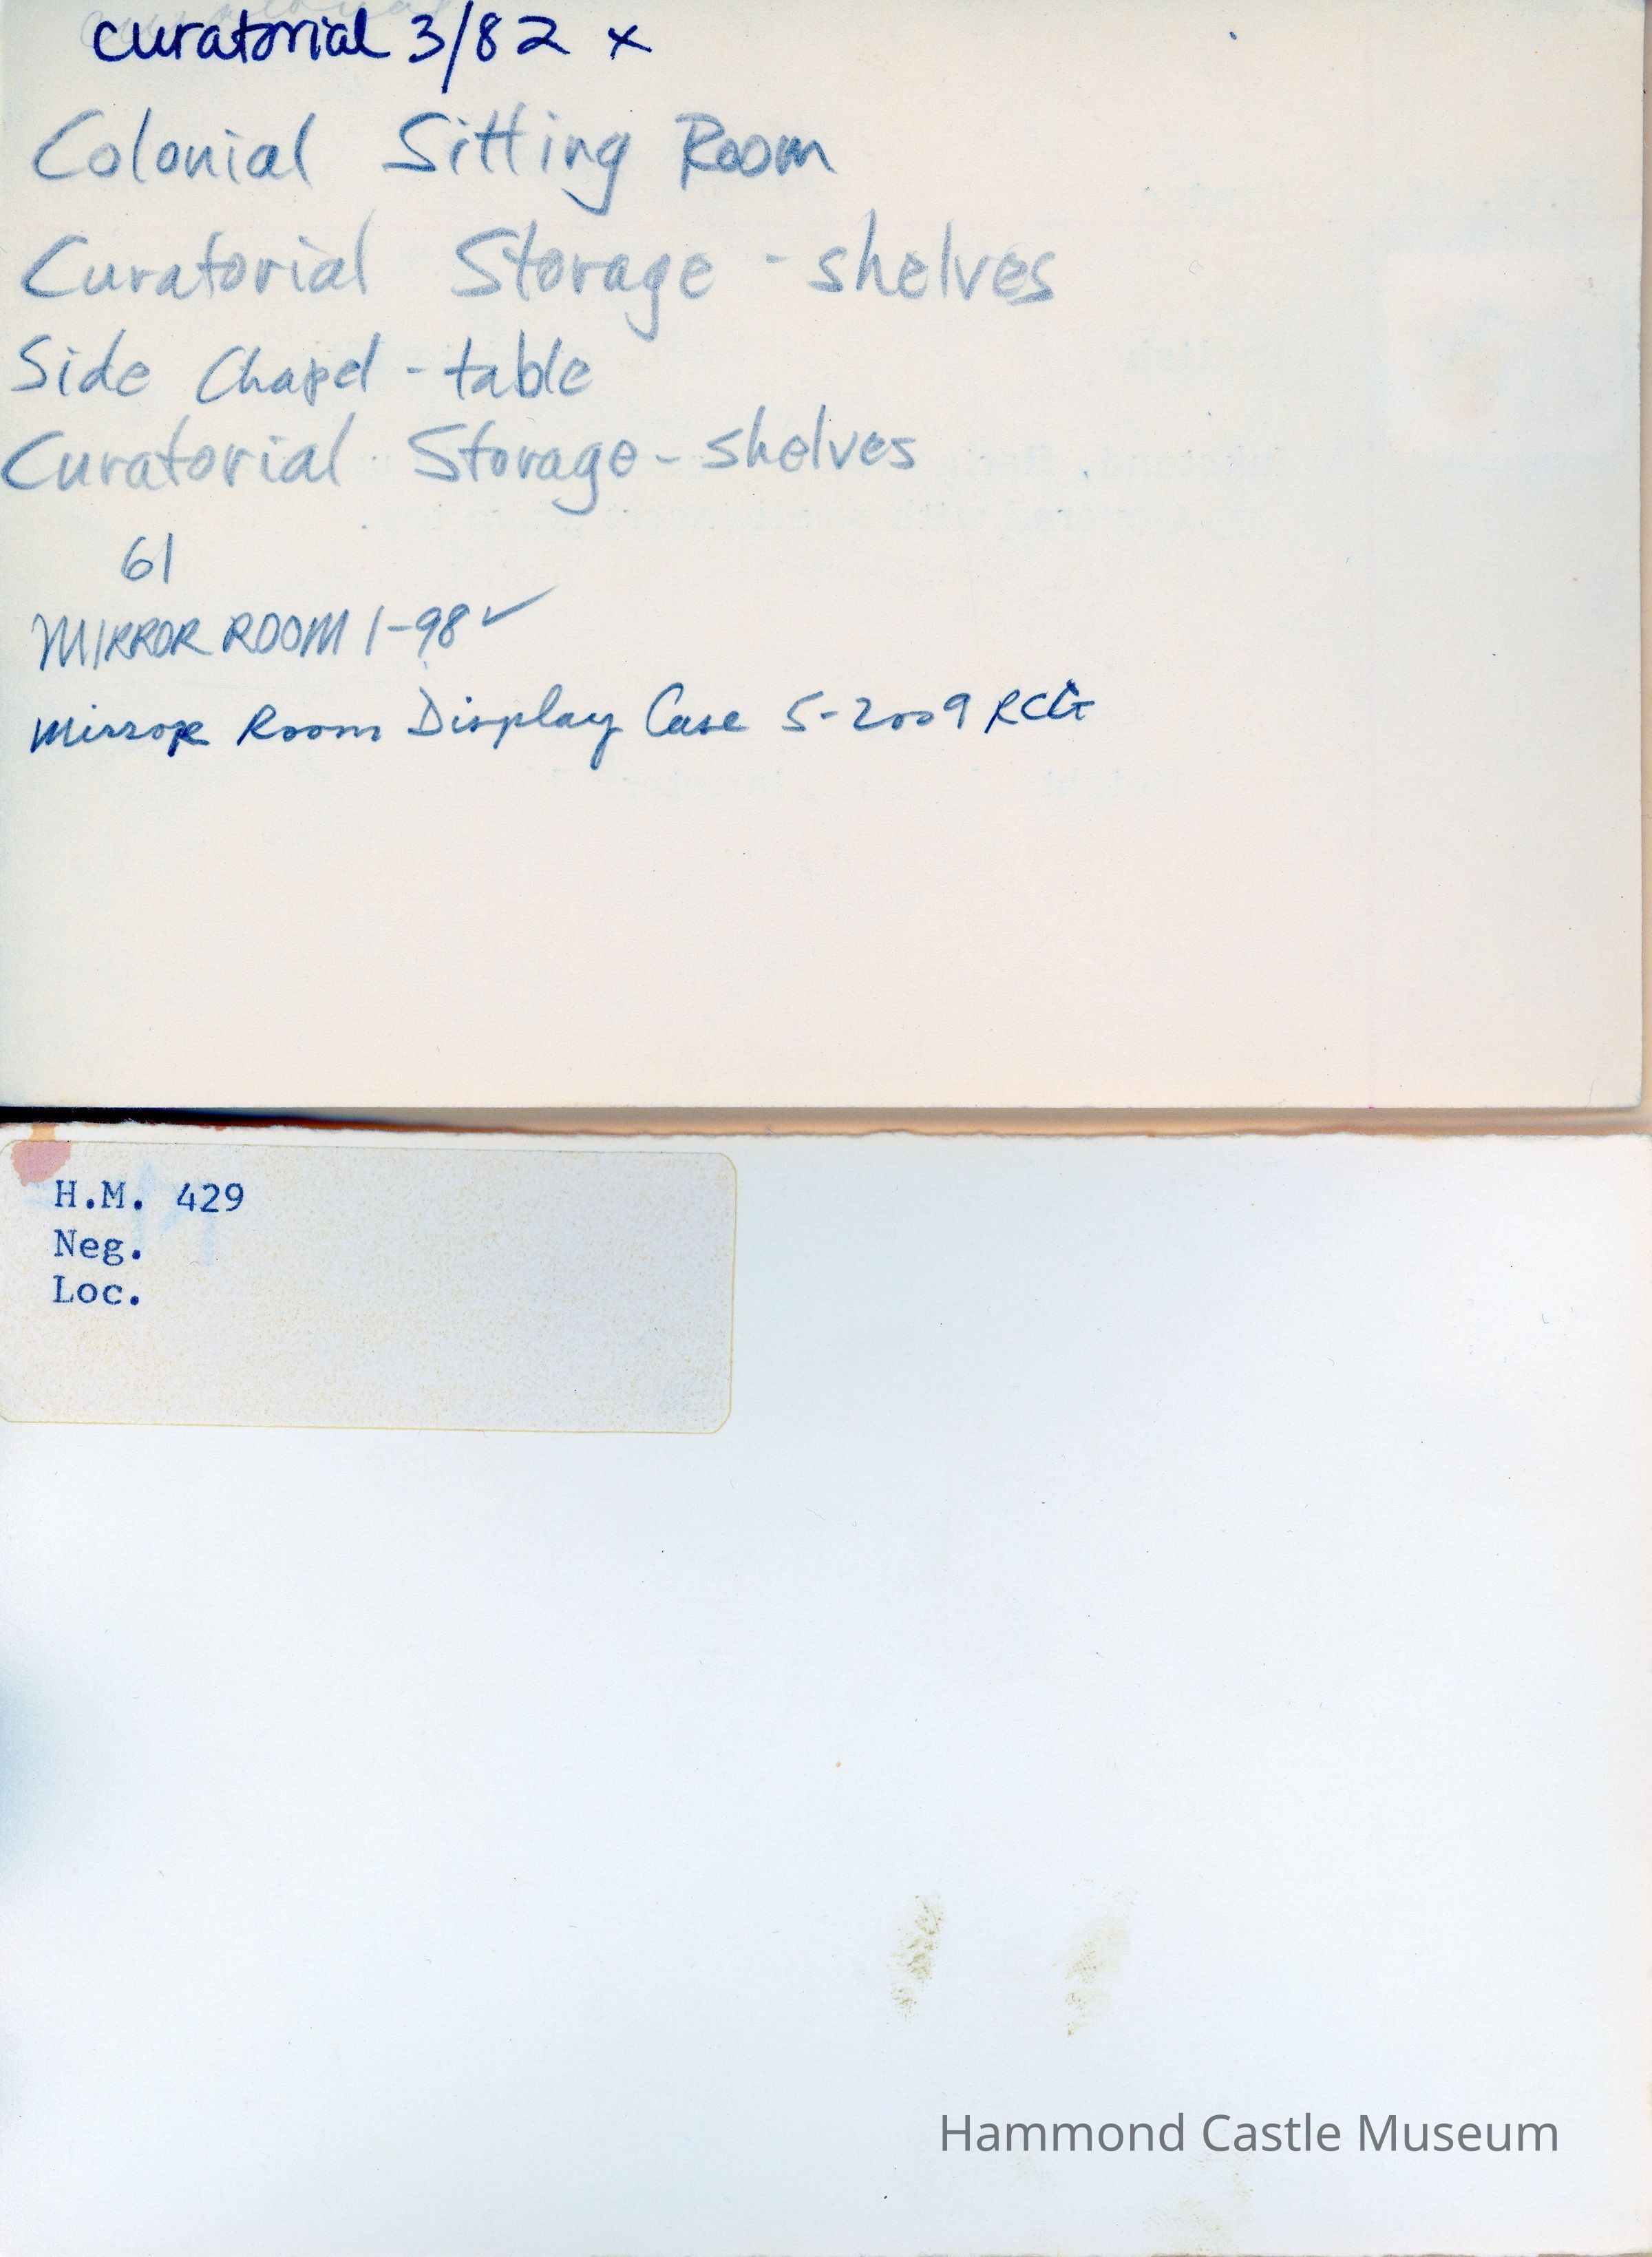 curatorial 3/82 x
Colonial Sitting Room
Curatorial Storage - shelves
Side Chapel - table
Curatorial Storage - shelves
61
MIRROR ROOM 1-98 ✓
Mirror Room Display Case 5-2009 RCG
H.M. 429
Neg.
Loc.
Hammond Castle Museum